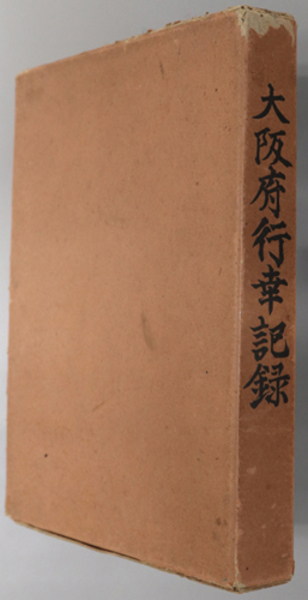 大阪府行幸記録